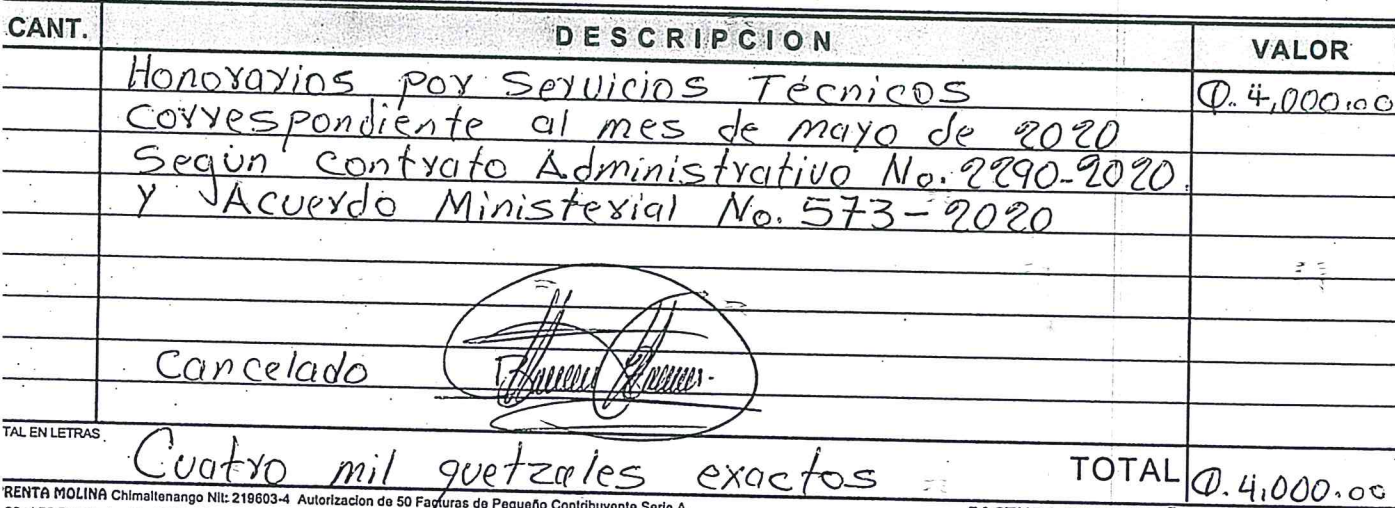 CANT. DESCRIPCION VALOR
Honorarios por Servicios Técnicos Q. 4,000.00
correspondiente al mes de mayo de 2020
Según contrato Administrativo No. 2290-2020
y Acuerdo Ministerial No. 573-2020
Cancelado
TAL EN LETRAS Cuatro mil quetzales exactos TOTAL Q. 4,000.00
RENTA MOLINA Chimaltenango Nit: 219603-4 Autorizacion de 50 Facturas de Pequeño Contribuyente Serie A